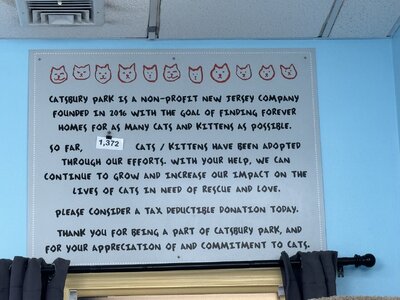 CATSBURY PARK IS A NON-PROFIT NEW JERSEY COMPANY
FOUNDED IN 2016 WITH THE GOAL OF FINDING FOREVER
HOMES FOR AS MANY CATS AND KITTENS AS POSSIBLE.
SO FAR, 1,372 CATS / KITTENS HAVE BEEN ADOPTED
THROUGH OUR EFFORTS. WITH YOUR HELP, WE CAN
CONTINUE TO GROW AND INCREASE OUR IMPACT ON THE
LIVES OF CATS IN NEED OF RESCUE AND LOVE.
PLEASE CONSIDER A TAX DEDUCTIBLE DONATION TODAY.
THANK YOU FOR BEING A PART OF CATSBURY PARK, AND
FOR YOUR APPRECIATION OF AND COMMITMENT TO CATS.